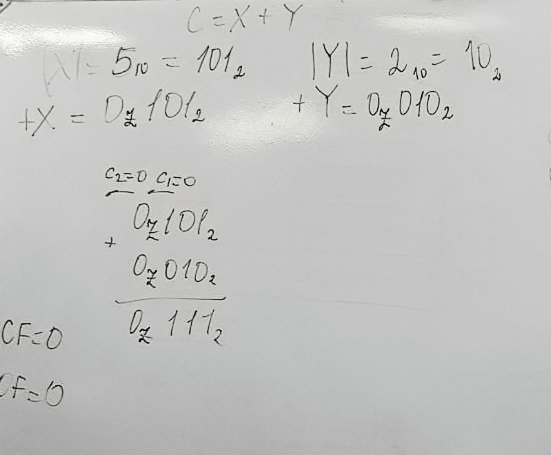 C = X + Y
|X| = 5₁₀ = 101₂ |Y| = 2₁₀ = 10₂
+X = 0z 101₂ + Y = 0z 010₂
C₂=0 C₁=0
0z 101₂
+
0z 010₂
0z 111₂
CF=0
OF=0